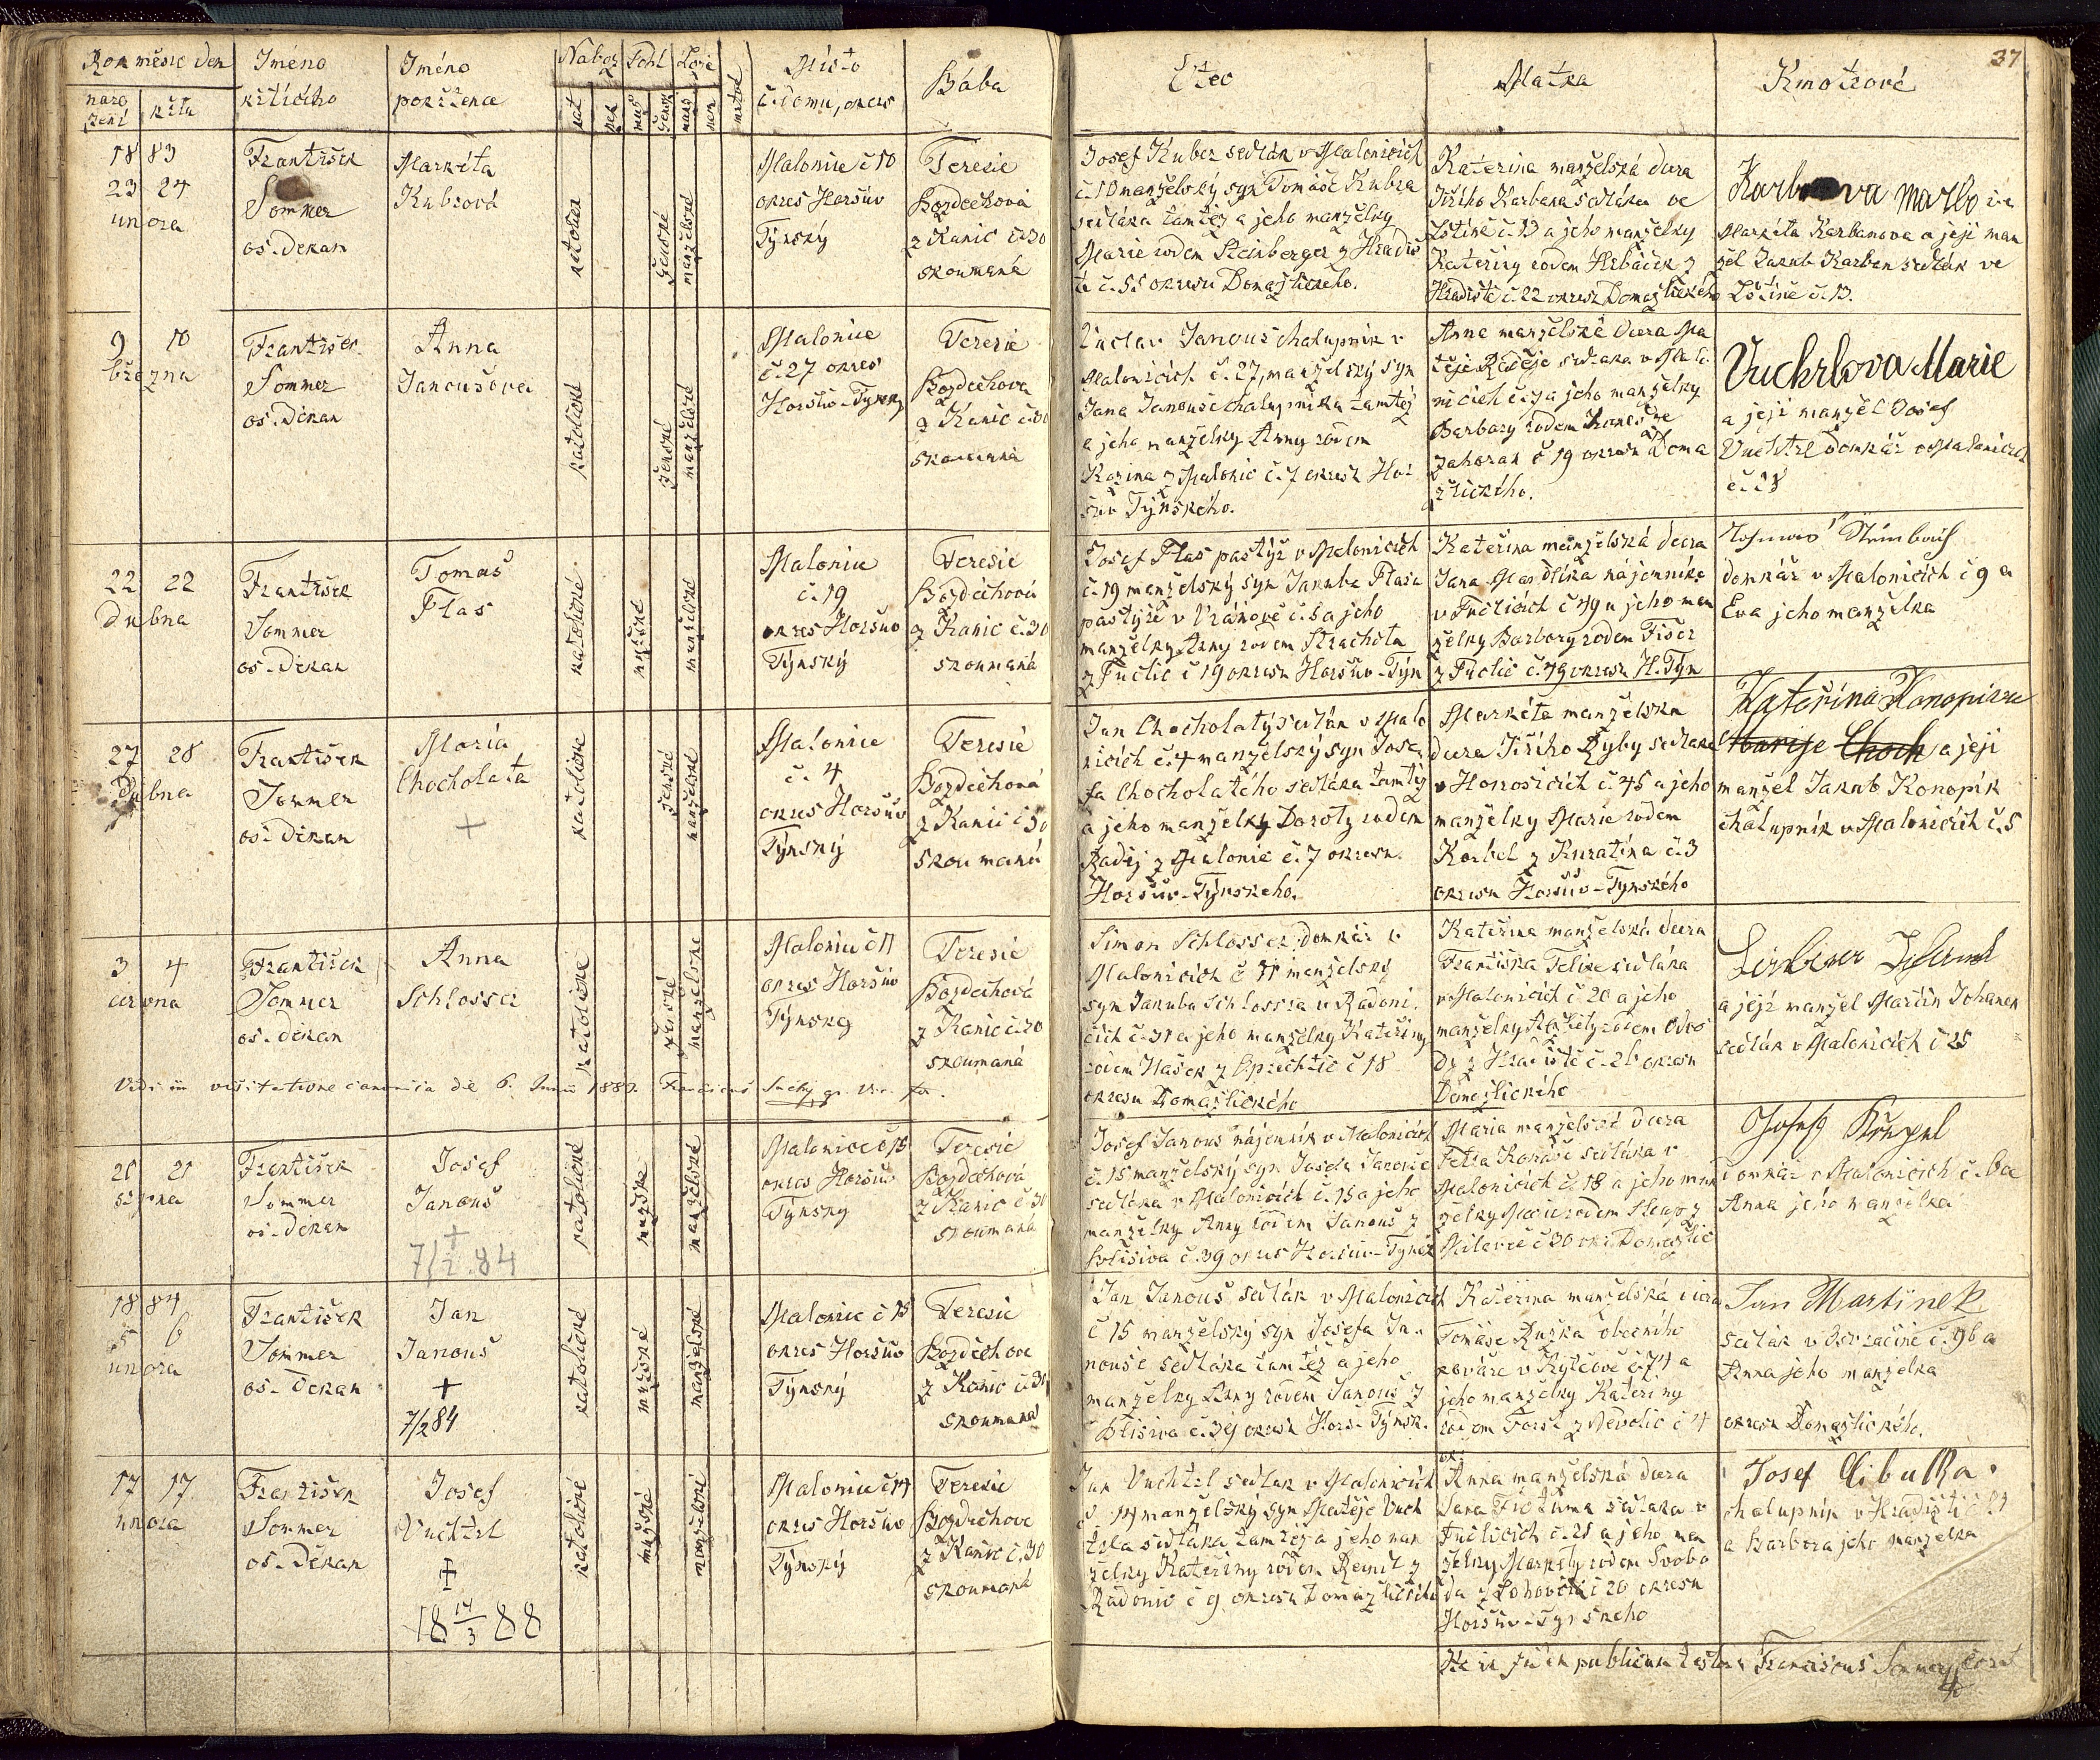 37
Rok měsíc den
naro
zení
křtu
Jméno
křtícího
Jméno
pokřtěnce
Nábož
Pohl
Lože
kat
muž
žensk
Místo
č. domu, okres
Bába
Otec
Matka
Kmotrové
18 83
23 24
unora
František
Sommer
os. děkan
Markéta
Kubrová
katolické
ženské
manželské
Malonice č 10
okres Horšův
Týnský
Teresie
Bozděchová
z Kanic č. 30
zkoumaná
Josef Kuber sedlák v Malonicích
č. 10 manželský syn Tomáše Kubra
sedláka tamtéž a jeho manželky
Marie rodem Steinberger z Hradiš
tě č. 55 okresu Domažlického.
Kateřina manželská dcera
Jiřího Karbana sedláka ve
Lštině č. 13 a jeho manželky
Kateřiny rodem Hrbáček z
Hradiště č. 22 okresu Domažlického
Markéta Karbanova a její man
žel Jakub Karban sedlák ve
Lštině č. 13.
9 10
března
František
Sommer
os. děkan
Anna
Janoušova
katolické
ženské
manželské
Malonice
č. 27 okres
Horšův-Týnský
Teresie
Bozděchova
z Kanic č. 30
zkoumaná
Václav Janouš chalupník v
Malonicích č. 27, manželský syn
Jana Janouše chalupníka tamtéž
a jeho manželky Anny rodem
Kozina z Malonic č. 7 okresu Hor
šův Týnského.
Anna manželská dcera Ma
těje Raděje sedláka v Malo
nicích č. 7 a jeho manželky
Barbory rodem
Zahořan č 19 okresu Doma
žlického.
Vuchrlova Marie
a její manžel Josef
Vuchtrl domkář v Malonicích
22 22
Dubna
František
Sommer
os. děkan
Tomáš
Flas
katolické
mužské
manželské
Malonice
č. 19
okres Horšův
Týnský
Teresie
Bozděchová
z Kanic č. 30
zkoumaná
Josef Flas pastýř v Malonicích
č. 19 manželský syn Jakuba Flasa
pastýře v Vránově č. 5 a jeho
manželky Anny rodem Strachota
z Fuclic č 19 okresu Horšův-Týn
Kateřina manželská dcera
Jana nájemníka
v Fuclicích č 49 a jeho man
želky Barbory rodem Fišer
z Fuclic č. 49 okresu H. Týn
domkář v Malonicích č 9 a
Eva jeho manželka
27 28
Dubna
František
Sommer
os. děkan
Maria
Chocholata
+
katolické
ženské
manželské
Malonice
č. 4
okres Horšův
Týnský
Teresie
Bozděchová
z Kanic č 30
zkoumaná
Jan Chocholatý sedlák v Malo
nicích č. 4 manželský syn Jose
fa Chocholatého sedláka tamtéž
a jeho manželky Doroty rodem
Raděj z Malonic č. 7 okresu
Horšův-Týnského.
Markéta manželská
dcera Jiřího Ryby sedláka
v Honosicích č. 45 a jeho
manželky Marie rodem
Korbel z Kuratína č. 3
okresu Horšův-Týnského
Kateřina Konopikva
Marije Choch a její
manžel Jakub Konopík
chalupník v Malonicích č. 5
3 4
června
František
Sommer
os. děkan
Anna
Schlosser
katolické
ženské
manželské
Malonice č 11
okres Horšův
Týnský
Teresie
Bozděchová
z Kanic č. 30
zkoumaná
Simon Schlosser domkář v
Malonicích č 11 manželský
syn Jakuba Schlossra v Radoni
cích č. 31 a jeho manželky Kateřiny
rodem Hašek z č 18
okresu Domažlického
Kateřina manželská dcera
Františka Felixe sedláka
v Malonicích č 20 a jeho
manželky Markéty rodem
z Hradiště č. 26 okresu
Domažlického
a její manžel Martin Johanek
sedlák v Malonicích č 25
Vidi in visitatione canonica die 6. Junii 1883. Franciscus
20 21
srpna
František
Sommer
os. děkan
Josef
Janouš
+
7/2.84
katolické
mužské
manželské
Malonice č 15
okres Horšův
Týnský
Teresie
Bozděchová
z Kanic č 30
zkoumaná
Josef Janouš nájemník v Malonicích
č. 15 manželský syn Josefa Janouše
sedláka v Malonicích č. 15 a jeho
manželky Anny rodem Janouš z
č. 39 okres Horšův-Týnský
Maria manželská dcera
Petra sedláka v
Malonicích č. 18 a jeho man
želky Marie rodem
Milavče č 30 okr. Domažlic
domkář v Malonicích č. 6 a
Anna jeho manželka
18 84
5 6
unora
František
Sommer
os. děkan
Jan
Janouš
+
7/2 84
katolické
mužské
manželské
Malonic č 15
okres Horšův
Týnský
Teresie
Bozděchova
z Kanic č. 30
zkoumaná
Jan Janouš sedlák v Malonicích
č 15 manželský syn Josefa Ja-
nouše sedláka tamtéž a jeho
manželky Anny rodem Janouš z
č. 39 okresu Horš. Týnsk.
Kateřina manželská dcera
Tomáše Růžka obecního
kováře v č. 71 a
jeho manželky Kateřiny
rodem Foršt z Nevolic č 4
Jan Martinek
sedlák v č. 96 a
Anna jeho manželka
okresu Domažlického.
17 17
unora
František
Sommer
os. Děkan
Josef
Vuchtrl
+
18 14/3 88
katolické
mužské
manželské
Malonice č 14
okres Horšův
Týnský
Teresie
Bozděchova
z Kanic č. 30
zkoumaná
Jan Vuchtrl sedlák v Malonicích
č. 14 manželský syn Matěje Vuch
trla sedláka tamtéž a jeho man
želky Kateřiny rodem z
Radonic č 9 okresu Domažlického
Anna manželská dcera
Jana sedláka v
Fuclicích č. 21 a jeho man
želky Markéty rodem Svobo
da z č 20 okresu
Horšův-Týnského
Josef Cibulka
chalupník v Hradišti č 21
a Barbora jeho manželka
publicam testor Franciscus Sommer